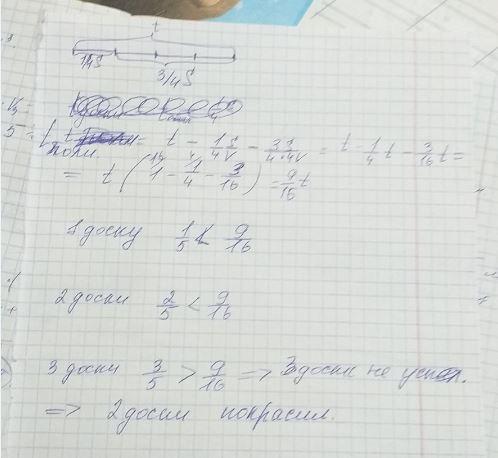 t
1/4 S
3/4 S
V₅ =
t t = t - 1/4 S/V - 3/4 · S/4V = t - 1/4 t - 3/16 t =
= t (1 - 1/4 - 3/16) = 9/16 t
1 доску 1/5 < 9/16
2 доски 2/5 < 9/16
3 доски 3/5 > 9/16 => 3 доски не успел.
=> 2 доски покрасил.